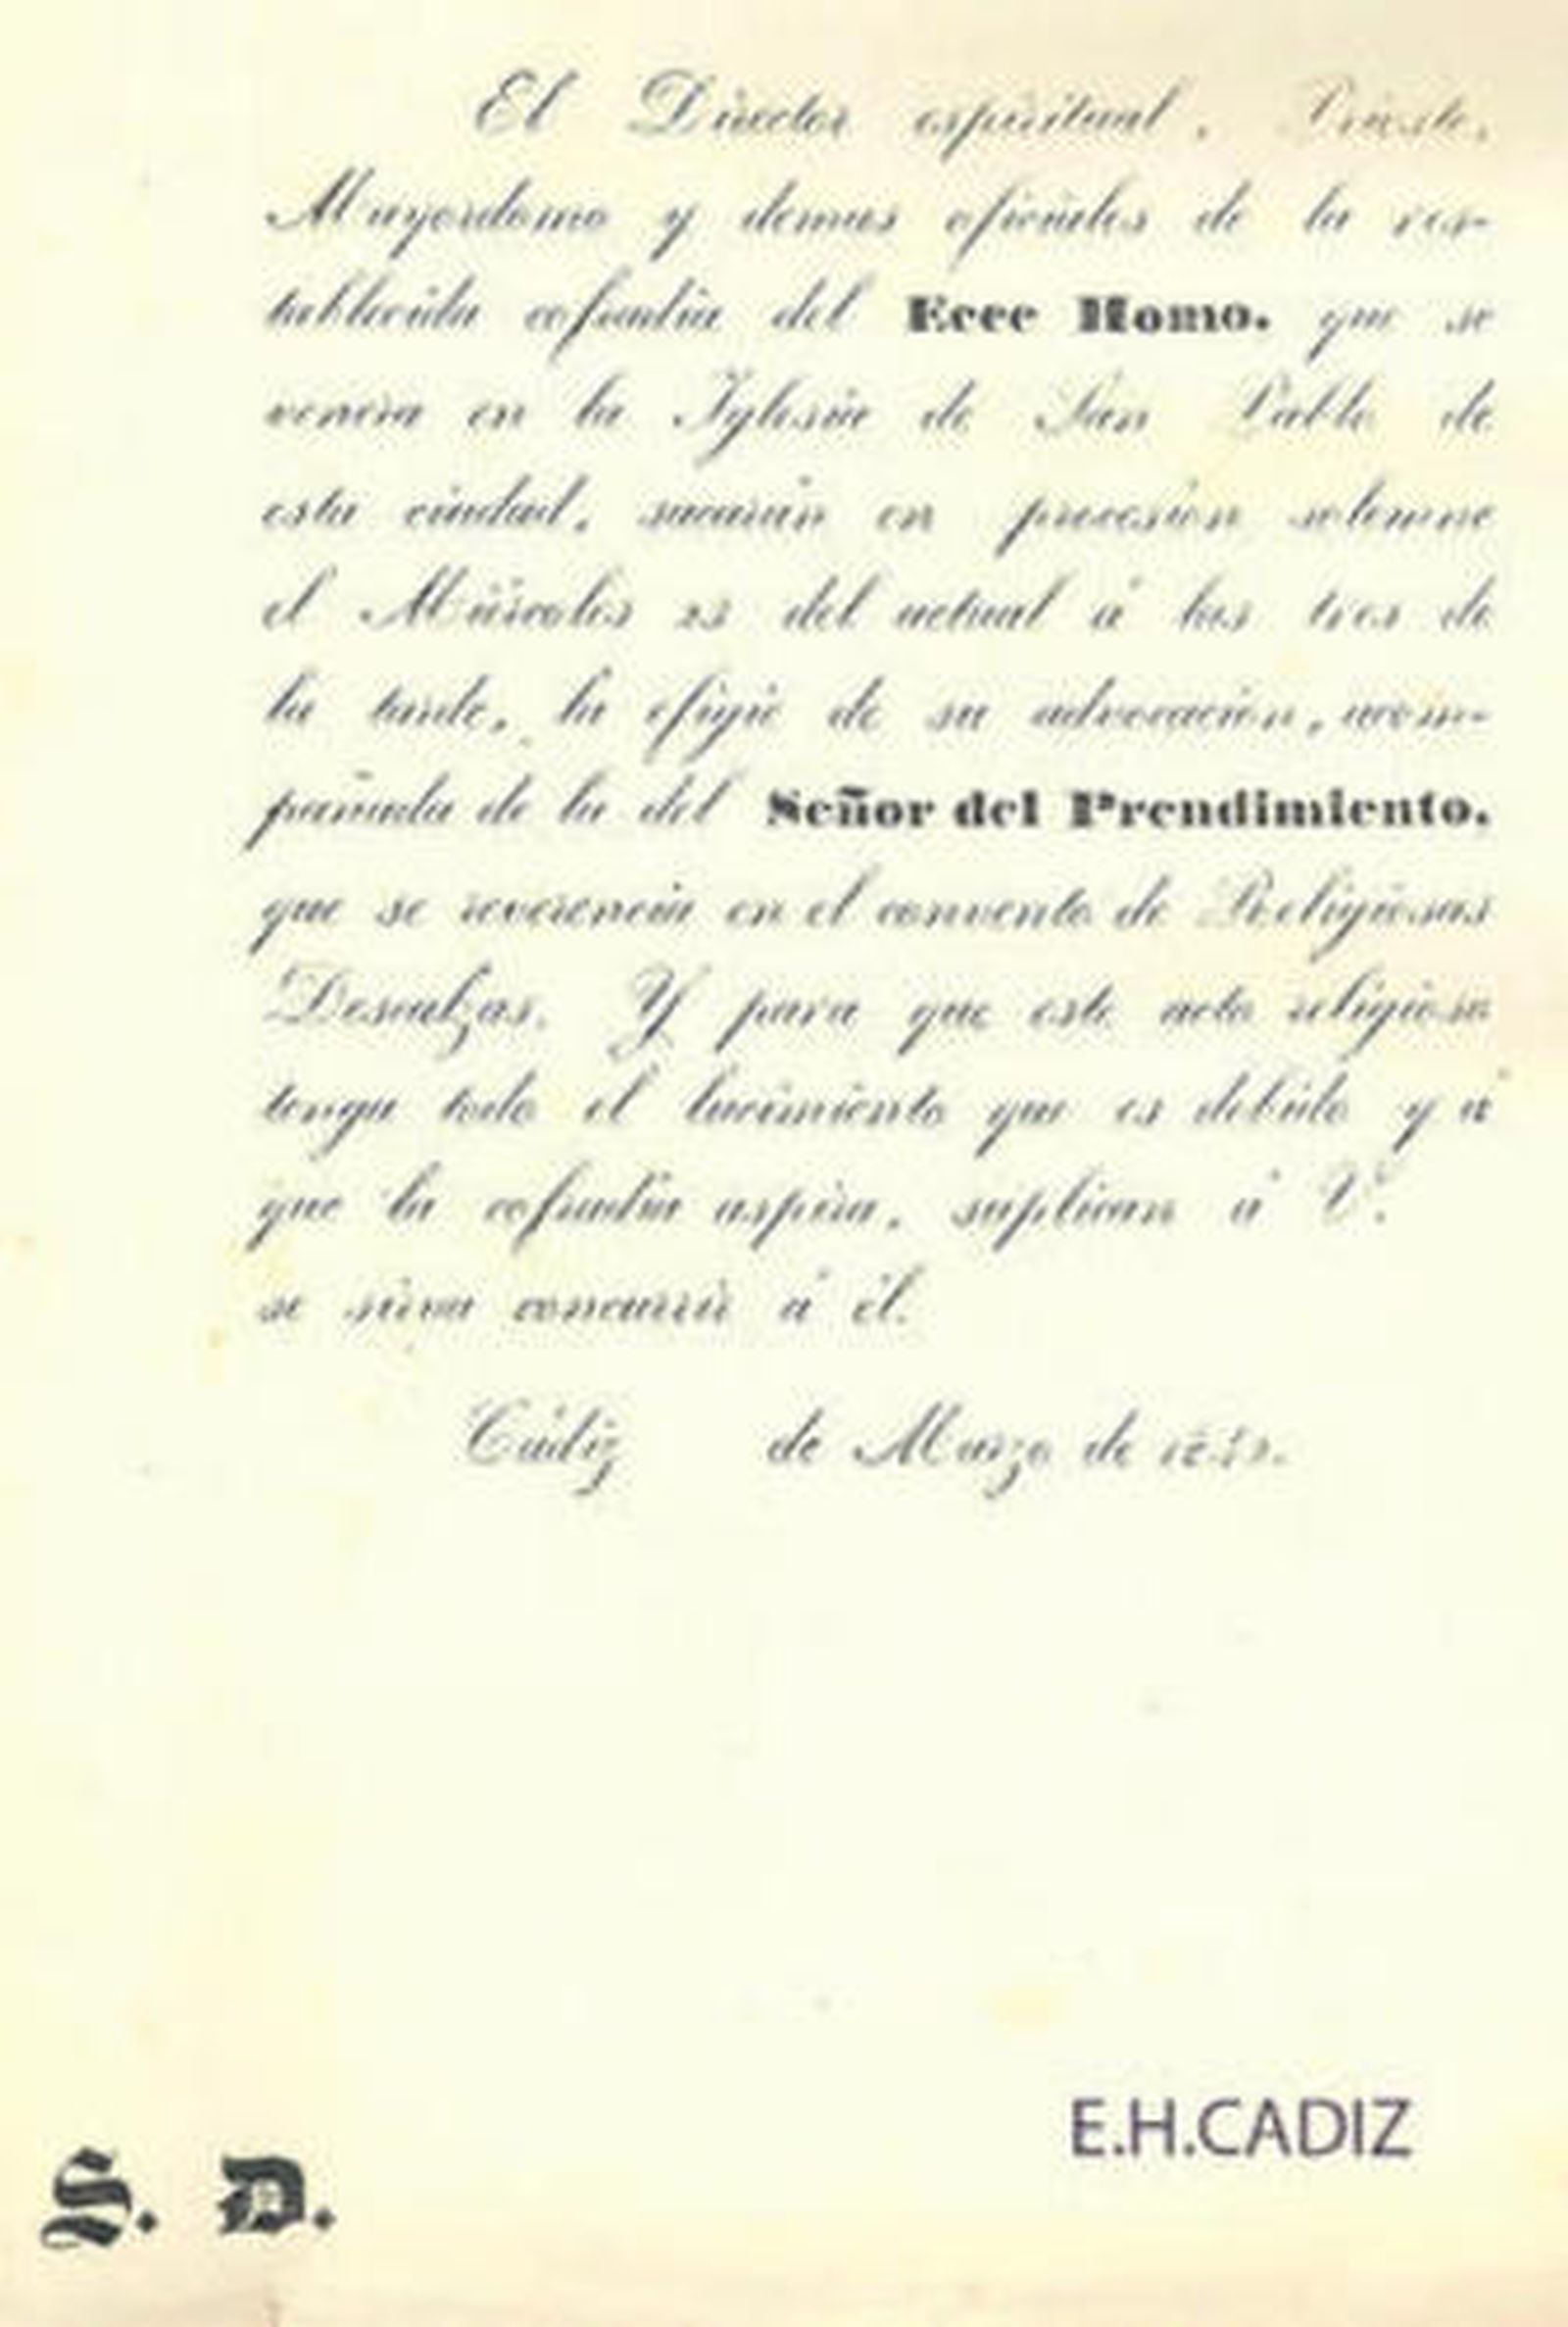 El Director espiritual, Prioste,
Mayordomo y demas oficiales de la res-
tablecida cofradia del Ecce Homo, que se
venera en la Iglesia de San Pablo de
esta ciudad, sacarán en procesion solemne
el Miércoles 23 del actual á las tres de
la tarde, la efigie de su advocacion, acom-
pañada de la del Señor del Prendimiento,
que se reverencia en el convento de Religiosas
Descalzas. Y para que este acto religioso
tenga todo el lucimiento que es debido y á
que la cofradia aspira, suplican á V.
se sirva concurrir á él.
Cádiz de Marzo de
E.H.CADIZ
S. D.